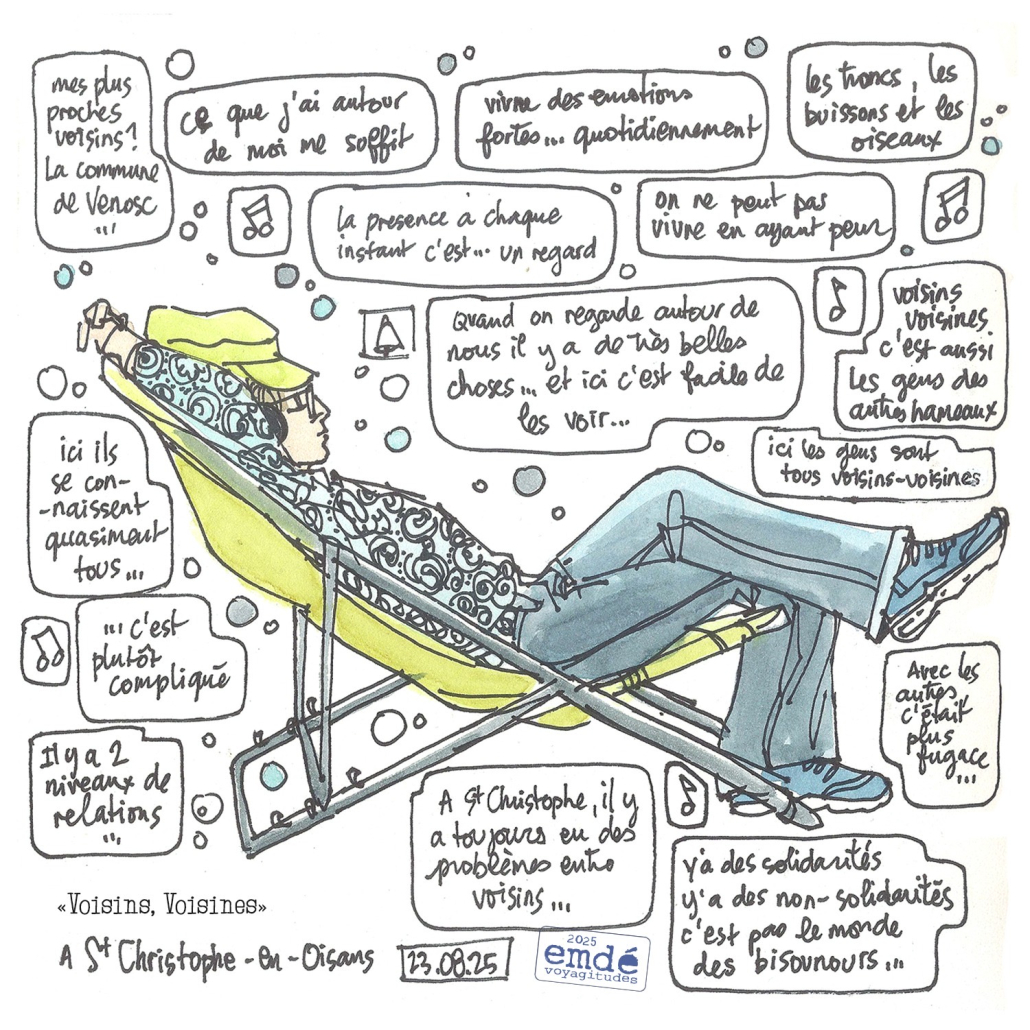 mes plus
proches
voisins?
La commune
de Venosc
...
ce que j'ai autour
de moi me soffit
vivre des emotions
fortes... quotidiennement
les troncs, les
buissons et les
oiseaux
la presence à chaque
instant c'est... un regard
on ne peut pas
vivre en ayant peur
Quand on regarde autour de
nous il y a de très belles
choses... et ici c'est facile de
les voir...
voisins
voisines
c'est aussi
les gens des
autres hameaux
ici les gens sont
tous voisins-voisines
ici ils
se con-
-naissent
quasiment
tous...
... c'est
plutôt
compliqué
Il y a 2
niveaux de
relations
...
Avec les
autres
c'était
plus
fugace
...
A St Christophe, il y
a toujours eu des
problèmes entre
voisins...
y'a des solidarités
y'a des non-solidarités
c'est pas le monde
des bisounours...
«Voisins, Voisines»
A St Christophe-en-Oisans
23.08.25
2025
emdé
voyagitudes